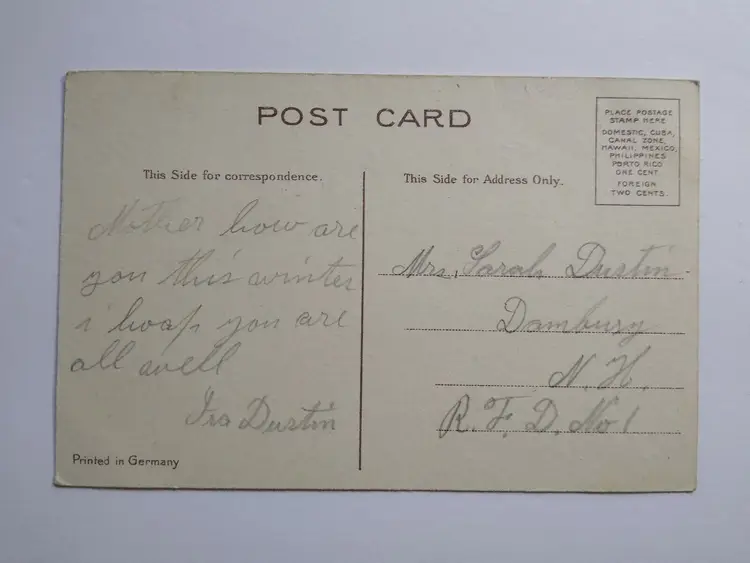 POST CARD
PLACE POSTAGE
STAMP HERE
DOMESTIC, CUBA,
CANAL ZONE,
HAWAII, MEXICO,
PHILIPPINES
PORTO RICO
ONE CENT
FOREIGN
TWO CENTS.
This Side for correspondence.
Mother how are
you this winter
i hoap you are
all well
Ira Dustin
Printed in Germany
This Side for Address Only.
Mrs. Sarah Dustin
Dambury
N. H.
R. F. D. No 1